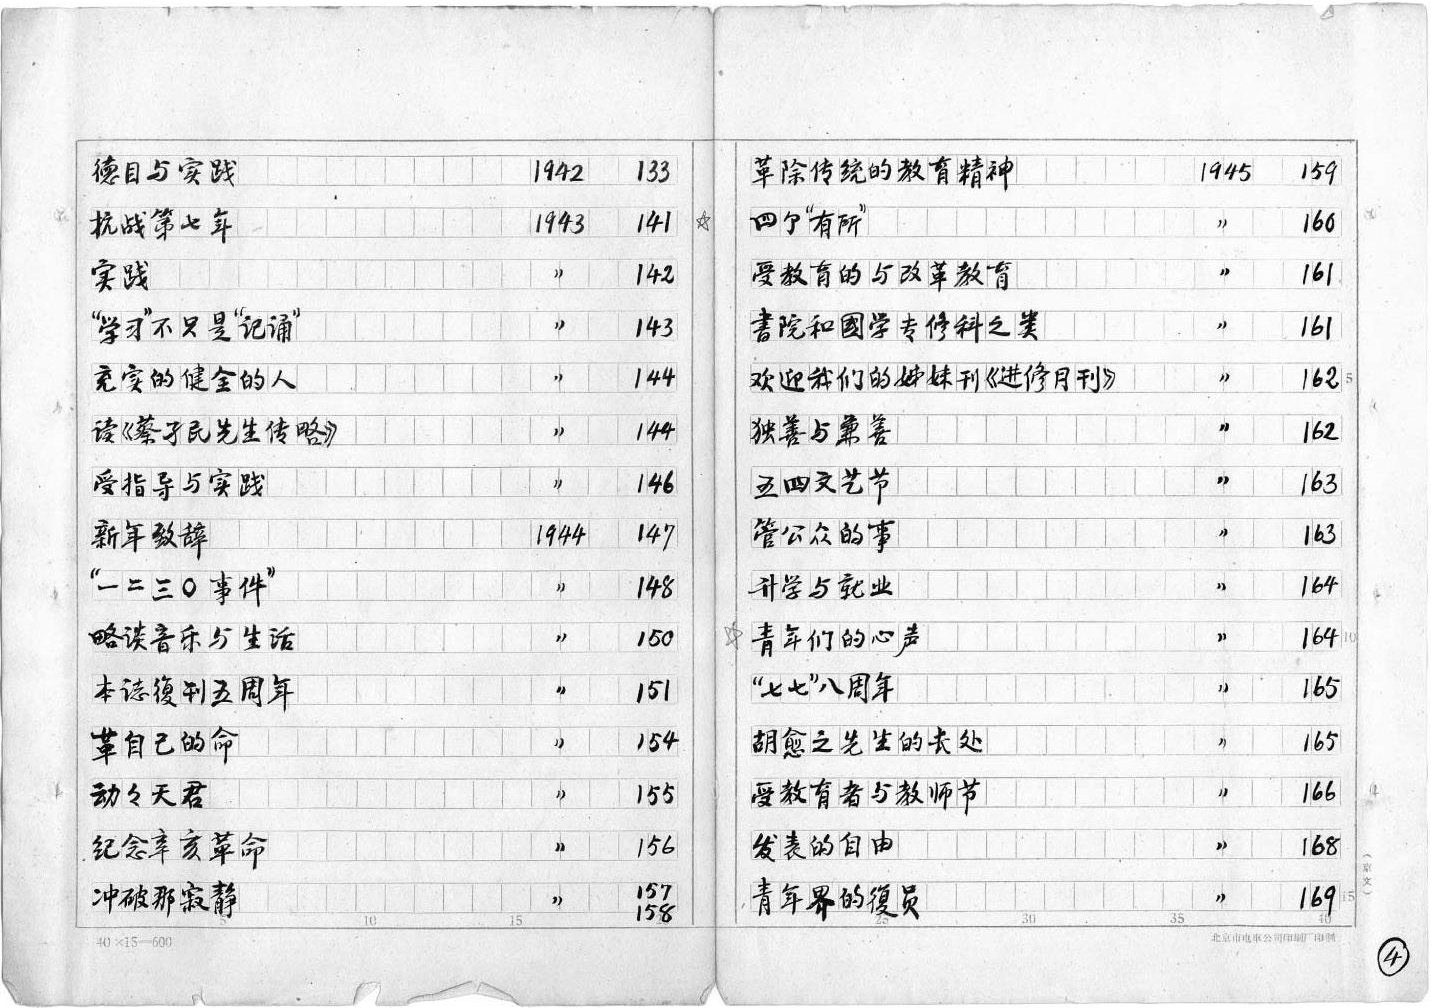 德目与实践 1942 133
抗战第七年 1943 141
实践 〃 142
“学习”不只是“记诵” 〃 143
充实的健全的人 〃 144
读《蔡孑民先生传略》 〃 144
受指导与实践 〃 146
新年致辞 1944 147
“一二三〇事件” 〃 148
略谈音乐与生活 〃 150
本誌復刊五周年 〃 151
革自己的命 〃 154
动々天君 〃 155
纪念辛亥革命 〃 156
冲破那寂静 〃 157
158
5 10 15
40×15—600
革除传统的教育精神 1945 159
☆ 四个“有所” 〃 160
受教育的与改革教育 〃 161
書院和國学专修科之类 〃 161
欢迎我们的姊妹刊《进修月刊》 〃 162 5
独善与兼善 〃 162
五四文艺节 〃 163
管公众的事 〃 163
升学与就业 〃 164
☆ 青年们的心声 〃 164 10
“七七”八周年 〃 165
胡愈之先生的去处 〃 165
受教育者与教师节 〃 166
发表的自由 〃 168
青年界的復员 〃 169 15
25 30 35 40
北京市电车公司印刷厂印制
④